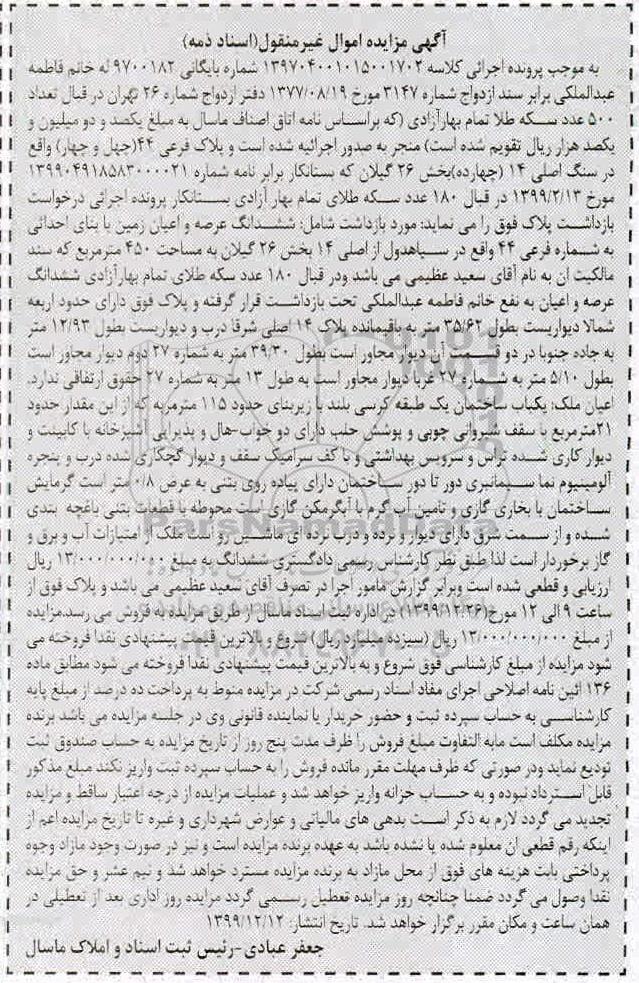 آگهی مزایده اموال غیرمنقول(اسناد ذمه)
به موجب پرونده اجرائی کلاسه ۱۳۹۷۰۴۰۰۱۰۱۵۰۰۱۷۰۲ شماره بایگانی ۹۷۰۰۱۸۲ له خانم فاطمه
عبدالملکی برابر سند ازدواج شماره ۳۱۴۷ مورخ ۱۳۷۷/۰۸/۱۹ دفتر ازدواج شماره ۲۶ تهران در قبال تعداد
۵۰۰ عدد سکه طلا تمام بهارآزادی (که براساس نامه اتاق اصناف ماسال به مبلغ یکصد و دو میلیون و
یکصد هزار ریال تقویم شده است) منجر به صدور اجرائیه شده است و پلاک فرعی ۴۴(چهل و چهار) واقع
در سنگ اصلی ۱۴ (چهارده)بخش ۲۶ گیلان که بستانکار برابر نامه شماره ۱۳۹۹۰۴۹۱۸۵۸۳۰۰۰۰۲۱
مورخ ۱۳۹۹/۲/۱۳ در قبال ۱۸۰ عدد سکه طلای تمام بهار آزادی بستانکار پرونده اجرائی درخواست
بازداشت پلاک فوق را می نماید: مورد بازداشت شامل: ششدانگ عرصه و اعیان زمین با بنای احداثی
به شماره فرعی ۴۴ واقع در سیاهدول از اصلی ۱۴ بخش ۲۶ گیلان به مساحت ۴۵۰ مترمربع که سند
مالکیت آن به نام آقای سعید عظیمی می باشد ودر قبال ۱۸۰ عدد سکه طلای تمام بهارآزادی ششدانگ
عرصه و اعیان به نفع خانم فاطمه عبدالملکی تحت بازداشت قرار گرفته و پلاک فوق دارای حدود اربعه
شمالا دیواریست بطول ۳۵/۶۲ متر به باقیمانده پلاک ۱۴ اصلی شرقا درب و دیواریست بطول ۱۲/۹۳ متر
به جاده جنوبا در دو قسمت آن دیوار مجاور است بطول ۳۹/۳۰ متر به شماره ۲۷ دوم دیوار مجاور است
بطول ۵/۱۰ متر به شماره ۲۷ غربا دیوار مجاور است به طول ۱۳ متر به شماره ۲۷ حقوق ارتفاقی ندارد.
اعیان ملک: یکباب ساختمان یک طبقه کرسی بلند با زیربنای حدود ۱۱۵ مترمربه که از این مقدار حدود
۲۱مترمربع با سقف شیروانی چوبی و پوشش حلب دارای دو خواب-هال و پذیرایی آشپزخانه با کابینت و
دیوار کاری شده تراس و سرویس بهداشتی و با کف سرامیک سقف و دیوار گچکاری شده درب و پنجره
آلومینیوم نما سیمانبری دور تا دور ساختمان دارای پیاده روی بتنی به عرض ۰/۸ متر است گرمایش
ساختمان با بخاری گازی و تامین آب گرم با آبگرمکن گازی است محوطه با قطعات بتنی باغچه بندی
شده و از سمت شرق دارای دیوار و نرده و درب نرده ای ماشین رو است ملک از امتیازات آب و برق و
گاز برخوردار است لذا طبق نظر کارشناس رسمی دادگستری ششدانگ به مبلغ ۱۳/۰۰۰/۰۰۰/۰۰۰ ریال
ارزیابی و قطعی شده است وبرابر گزارش مامور اجرا در تصرف آقای سعید عظیمی می باشد و پلاک فوق از
ساعت ۹ الی ۱۲ مورخ(۱۳۹۹/۱۲/۲۶) در اداره ثبت اسناد ماسال از طریق مزایده به فروش می رسد.مزایده
از مبلغ ۱۳/۰۰۰/۰۰۰/۰۰۰ ریال (سیزده میلیارد ریال) شروع و بالاترین قیمت پیشنهادی نقدا فروخته می
شود مزایده از مبلغ کارشناسی فوق شروع و به بالاترین قیمت پیشنهادی نقدا فروخته می شود مطابق ماده
۱۳۶ آئین نامه اصلاحی اجرای مفاد اسناد رسمی شرکت در مزایده منوط به پرداخت ده درصد از مبلغ پایه
کارشناسی به حساب سپرده ثبت و حضور خریدار یا نماینده قانونی وی در جلسه مزایده می باشد برنده
مزایده مکلف است مابه التفاوت مبلغ فروش را ظرف مدت پنج روز از تاریخ مزایده به حساب صندوق ثبت
تودیع نماید ودر صورتی که ظرف مهلت مقرر مانده فروش را به حساب سپرده ثبت واریز نکند مبلغ مذکور
قابل استرداد نبوده و به حساب خزانه واریز خواهد شد و عملیات مزایده از درجه اعتبار ساقط و مزایده
تجدید می گردد لازم به ذکر است بدهی های مالیاتی و عوارض شهرداری و غیره تا تاریخ مزایده اعم از
اینکه رقم قطعی آن معلوم شده یا نشده باشد به عهده برنده مزایده است و نیز در صورت وجود مازاد وجوه
پرداختی بابت هزینه های فوق از محل مازاد به برنده مزایده مسترد خواهد شد و نیم عشر و حق مزایده
نقدا وصول می گردد ضمنا چنانچه روز مزایده تعطیل رسمی گردد مزایده روز اداری بعد از تعطیلی در
همان ساعت و مکان مقرر برگزار خواهد شد. تاریخ انتشار: ۱۳۹۹/۱۲/۱۲
جعفر عبادی-رئیس ثبت اسناد و املاک ماسال
ParsNamadData